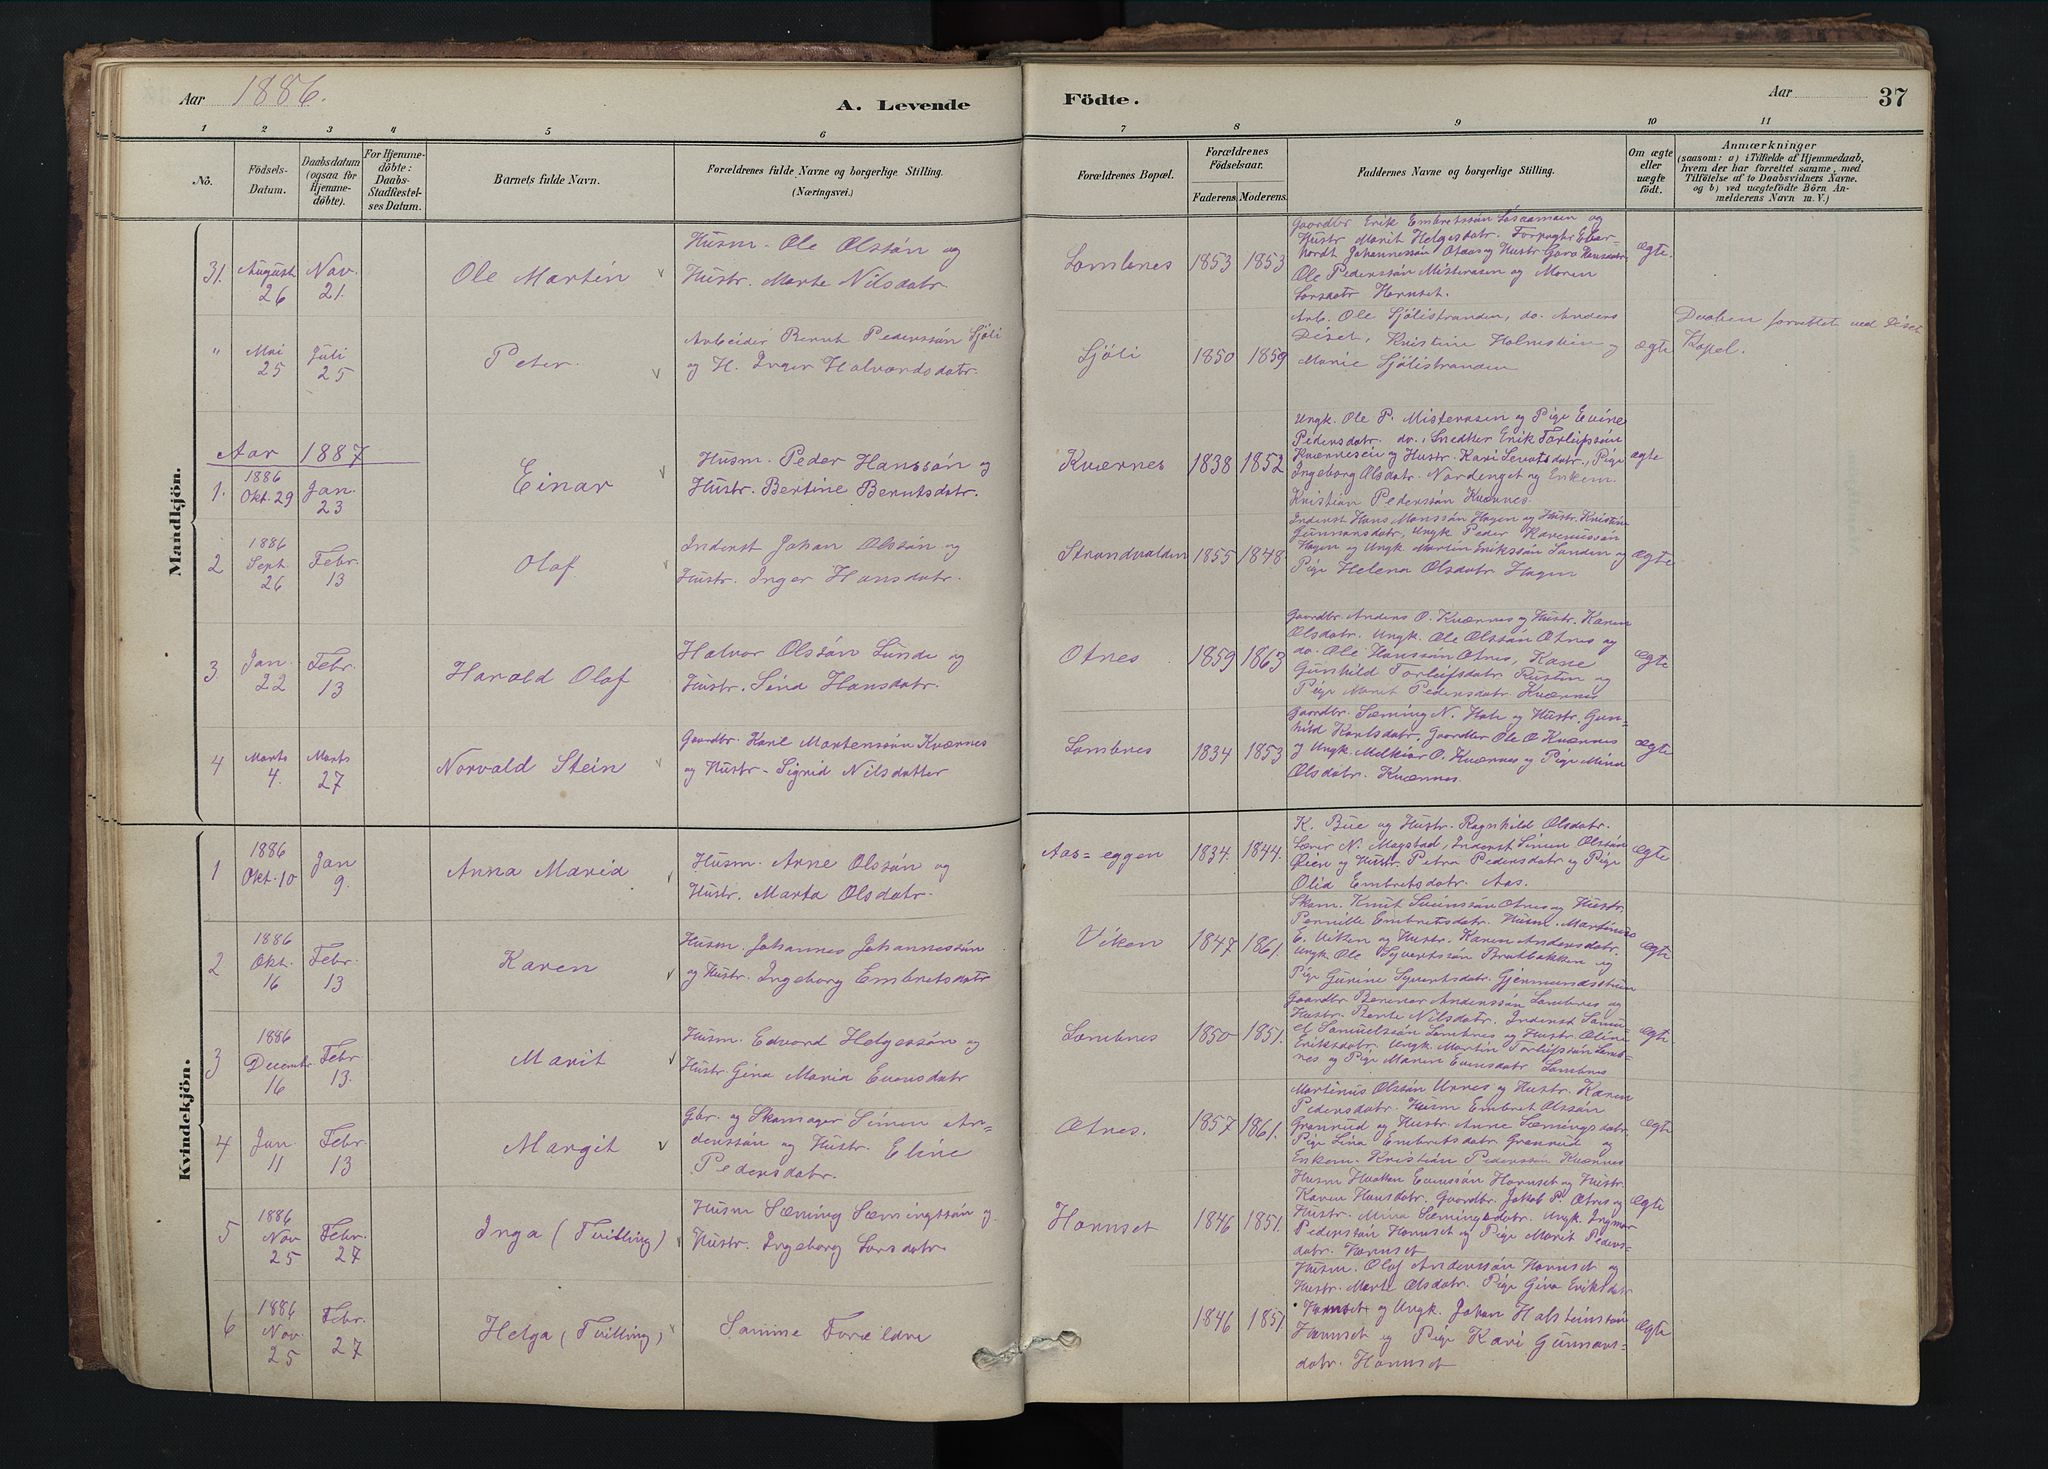 Aar 1886.
A. Levende
Födte.
Aar
37
1 2 3 4 5 6 7 8 9 10 11
No.
Födsels-Datum.
Daabsdatum (ogsaa for Hjemmedöbte).
For Hjemmedöbte: Daabs-Stadfestelses Datum.
Barnets fulde Navn.
Forældrenes fulde Navne og borgerlige Stilling.
(Næringsvei.)
Forældrenes Bopæl.
Forældrenes Födselsaar.
Faderens. Moderens.
Faddernes Navne og borgerlige Stilling.
Om ægte eller uægte födt.
Anmærkninger
(saasom: a) i Tilfælde af Hjemmedaab,
hvem der har forrettet samme, med
Tilföielse af to Daabsvidners Navne.
og b) ved uægtefödte Börn An-
melderens Navn m. V.)
Mandkjön.
31. August 26 Nov. 21. Ole Martin
Husm. Ole Olssön og
Hustr. Marte Nilsdatr.
Lombnes 1853 1853
Gaardbr Erik Embretssön og
Hustr Marit Helgesdatr. Forpagtr Eber-
hardt Johannessön og Hustr
Ole Pederssön Misterasen og Maren
Larsdatr Hornset.
ægte.
" Mai 25 Juli 25 Peter.
Arbeider Bernt Pederssön Sjöli
og H. Inger Halvardsdatr.
Sjöli 1850 1859
Arb. Ole Sjölistranden, do. Anders
Diset, Kristine Holmstein og
Marie Sjölistranden
ægte
Daaben forrettet ved Diset
Kapel.
Aar 1887
1. 1886 Okt. 29 Jan. 23 Einar
Husm. Peder Hanssön og
Hustr. Bertine Berntsdatr.
Kværnes 1838 1852
Ungk. Ole P. Misterasen og Pige Evine
Pedersdatr. do., Snedker Erik Torleifssön
Kværnesen og Hustr. Kari, Pige
Ingeborg Olsdatr. Nordenget og Enkem.
Kristian Pederssön Kværnes.
ægte
2 1886 Sept. 26 Febr. 13 Olaf
Inderst Johan Olssön og
Hustr. Inger Hansdatr.
Strandvolden 1855 1848
Inderst Hans Monssön Hagen og Hustr. Kristin
Gunnarsdatr, Ungk Peder
Hagen og Ungk Martin Erikssön Sanden og
Pige Helena Olsdatr Hagen
ægte
3 Jan. 22 Febr. 13 Harald Olaf
Halvor Olssön Lunde og
Hustr. Sina Hansdatr.
Otnes 1859 1863
Gaardbr Anders O. Kværnes og Hustr. Karen
Olsdatr. Ungk. Ole Olssön Otnes og
do. Ole Hanssön Otnes, Kone
Gunhild Torleifsdatr Rusten og
Pige Marit Pedersdatr. Kværnes
ægte
4 Marts 4. Marts 27 Norvald Stein
Gaardbr. Karl Martenssön Kværnes
og Hustr. Sigrid Nilsdatter
Lombnes 1834 1853
Gaardbr. Sæming N. Hole og Hustr. Gun-
hild Karlsdatr, Gaardbr Ole O Kværnes
og Ungk Melkior O. Kværnes og Pige Mina
Olsdatr. Kværnes.
ægte
Kvindekjön.
1 1886 Okt. 10 Jan 9. Anna Maria
Husm. Arne Olssön og
Hustr. Marta Olsdatr.
Aas=eggen 1834. 1844.
K. Bue og Hustr. Ragnhild Olsdatr.
Lærer N. Magstad, Inderst Simen Olssön
Öien og Hustr. Petra Pedersdatr og Pige
Olia Embretsdatr. Aas.
ægte
2 1886 Okt. 16 Febr. 13 Karen
Husm. Johannes Johannessön
og Hustr. Ingeborg Embretsdatr
Viken 1847 1861.
Skom. Knut Svenssön Otnes og Hustr.
Pernille Embretsdatr. Husm. Martinius
E. Viken og Hustr. Karen Andersdatr.
Ungk Ole Syvertssön Bratbakken og
Pige Gurine Syvertsdatr. Gjermundsstuen
ægte
3 1886 Decembr 16 Febr. 13. Marit
Husm. Edvard Helgessön og
Hustr. Gina Maria Evensdatr
Lombnes 1850 1851.
Gaardbr Berner Anderssön Lombnes og
Hustr. Bente Nilsdatr. Inderst Samu-
el Samuelssön Lombnes og Hustr. Oline
Eriksdatr. Ungk. Martin Torleifssön Lomb-
nes og Pige Maren Evensdatr Lombnes
ægte
4 Jan. 11 Febr. 13 Margit
Gbr. og Skomager Simen An=
derssön og Hustr. Eline
Pedersdatr.
Otnes. 1857 1861.
Martinus Olssön Urnes og Hustr. Karen
Pedersdatr. Husm Embret Olssön
Grønrud og Hustr. Anne Sæmingsdatr,
Pige Lina Embretsdatr Grønrud og
Enkem. Kristian Pederssön Kværnes
ægte
5 1886 Nov 25 Febr. 27 Inga (Tvilling)
Husm Sæming Sæmingssön og
Hustr. Ingeborg Larsdatr.
Hornset 1846 1851.
Husm Haaken Evenssön Hornset og Hustr.
Karen Hansdatr. Gaardbr. Jakob P. Otnes og
Hustr. Mina Sæmingsdatr. Ungk. Ingvar
Pederssön Hornset og Pige Marit Peders-
datr. Hornset
ægte
6 1886 Nov. 25 Febr. 27 Helga (Tvilling)
Samme Foreldre
1846 1851
Husm. Olaf Anderssön Hornset og
Hustr. Marte Olsdatr. Pige Gina Eriksdatr
Hornset og Ungk. Johan Halsteinssön
Hornset og Pige Kari Gunnars=
datr. Hornset
ægte